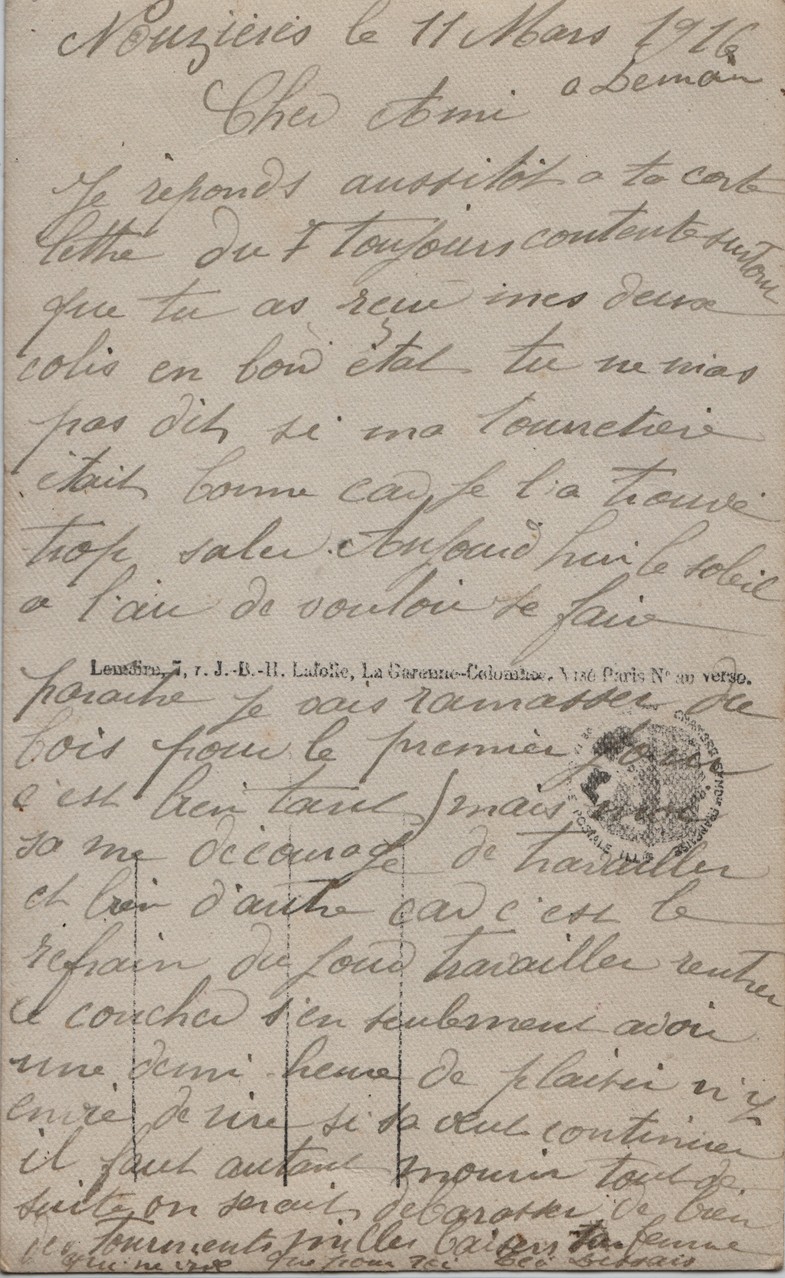 Nouzières le 11 Mars 1916
a Demain
Cher Ami
Je réponds aussitôt a ta carte
lettre du 7 toujours contente surtout
que tu as reçu mes deux
colis en bon état tu ne mas
pas dit si ma tourretiere
était bonne car je l'a trouvé
trop saler. Aujourd'hui le soleil
a l'air de vouloir se faire
Lemaire, 7, r. J.-B.-H. Lafolie, La Garenne-Colombes. Visé Paris N° au verso.
paraitre je vais ramasser du
bois pour le premier
c'est bien tard mais
sa me décourage de travailler
et bien d'autre car c'est le
refrain du jour travailler rentrer
ce coucher s'en seulement avoir
une demi heure de plaisir n'y
envie de rire si sa veut continuer
il faut autant mourir tout de
suite on serait debarasser de bien
des tourments milles baisers ta femme
qui ne vie que pour toi